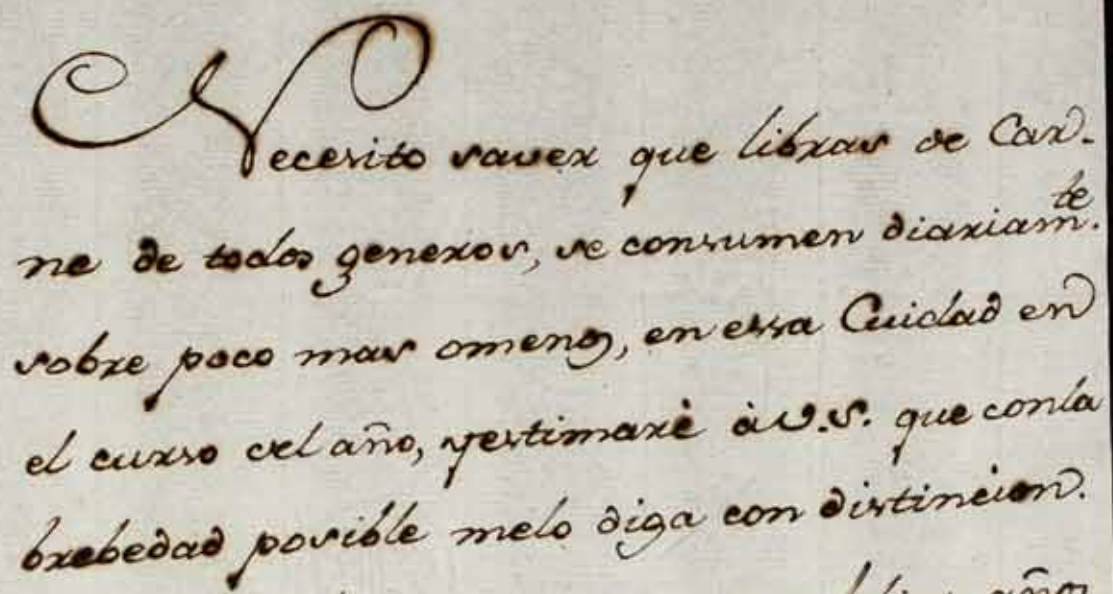 Necesito saver que libras de Car-
ne de todos generos, se consumen diariam.te
sobre poco mas omenos, en essa Cuidad en
el curso del año, yestimarè à V.S. que conla
brebedad posible melo diga con distincion.
años